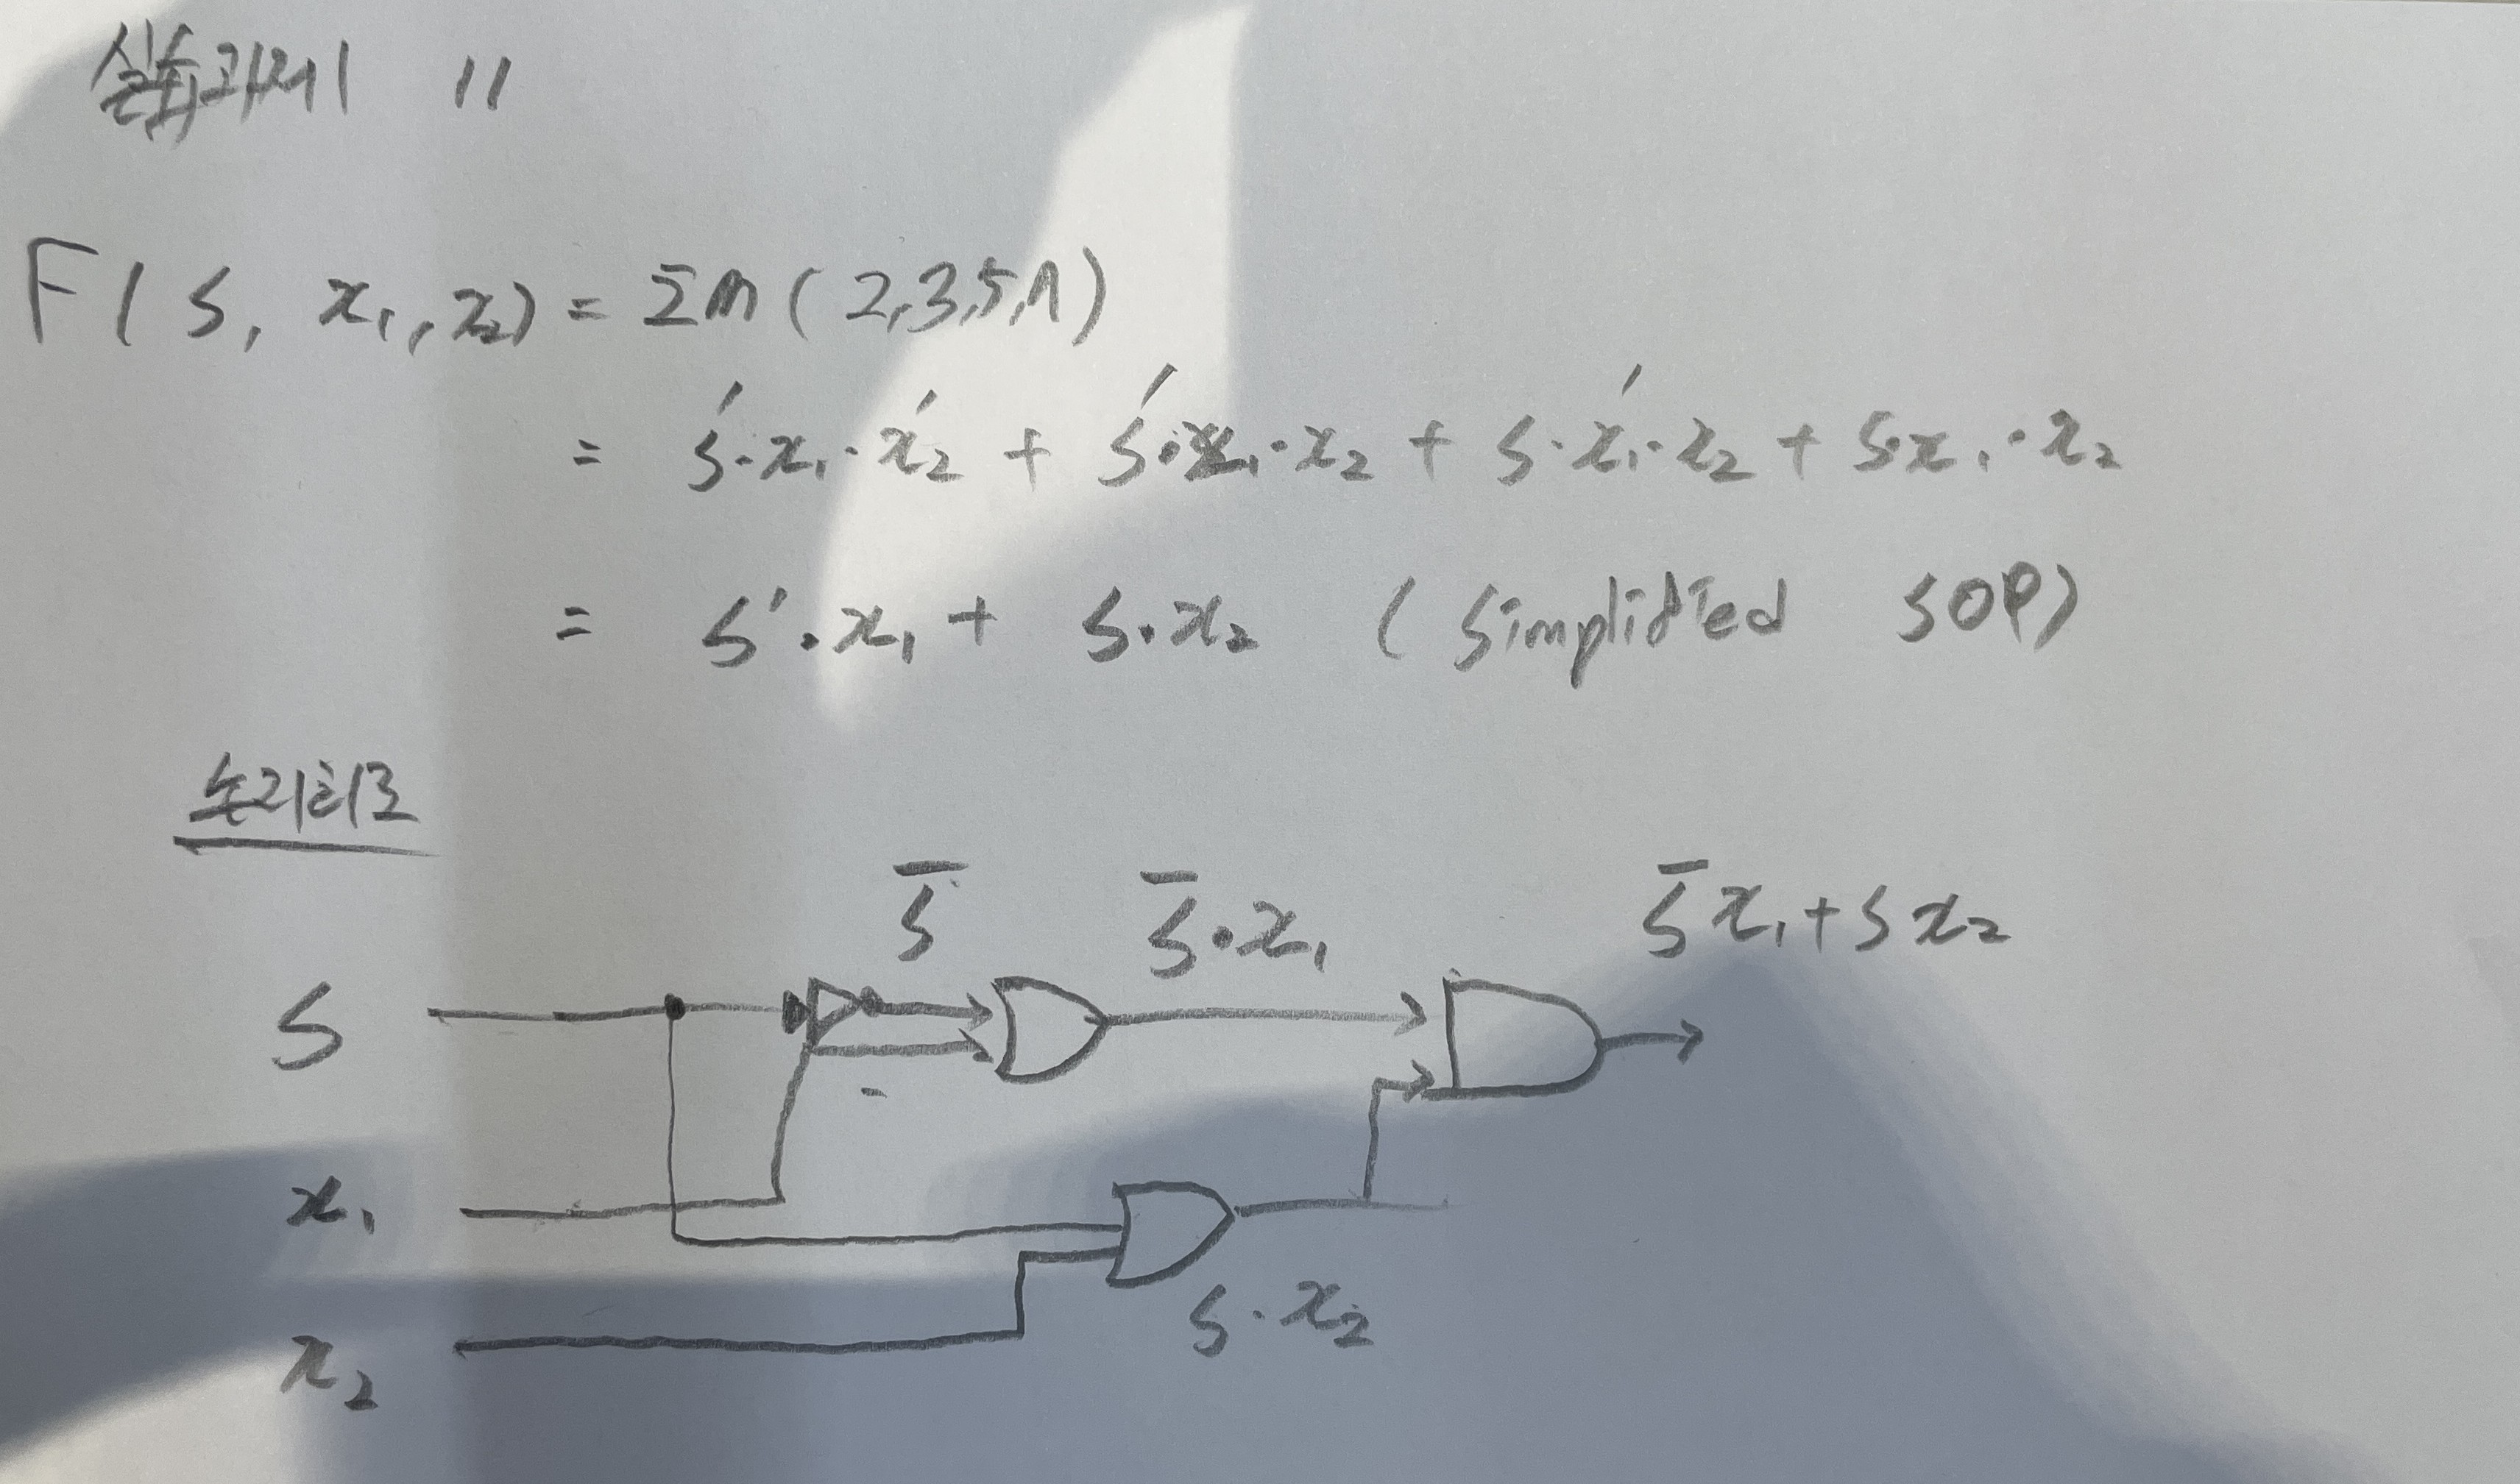 실습과제 11
F(S, x₁, x₂) = Σm(2,3,5,7)
= S'·x₁·x₂' + S'·x₁·x₂ + S·x₁'·x₂ + S·x₁·x₂
= S'·x₁ + S·x₂ (Simplified SOP)
논리회로
S̅ S̅·x₁ S̅x₁+Sx₂
S
x₁
S·x₂
x₂